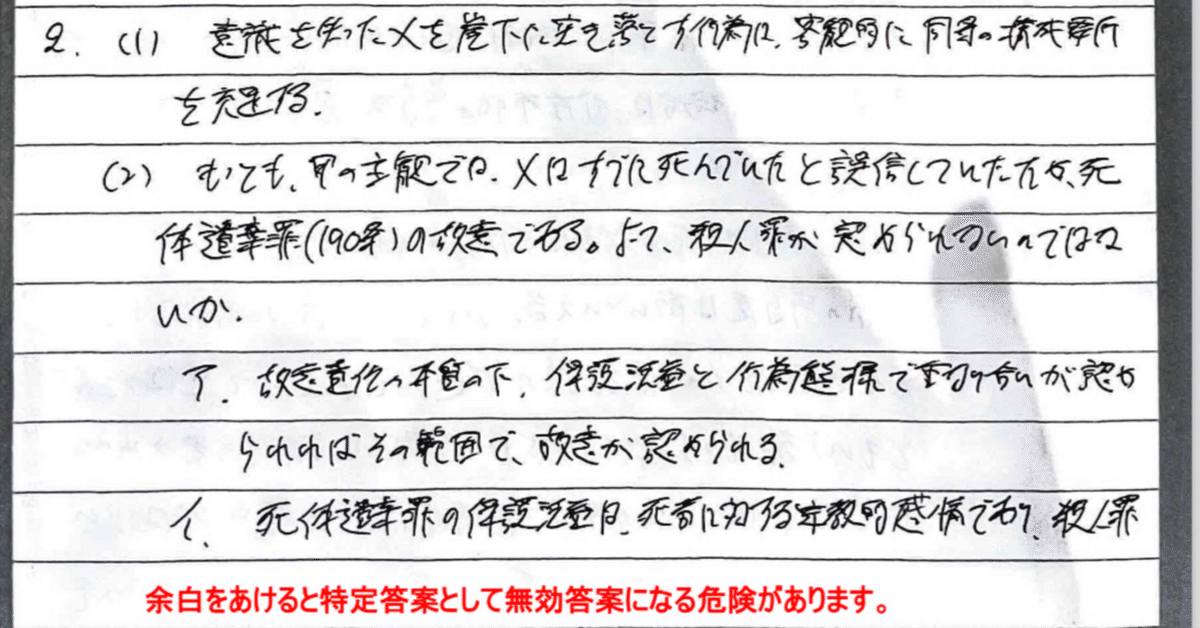 2. (1) 意識を失ったXを崖下に突き落とす行為は、客観的に同条の構成要件
を充足する.
(2) もっとも、甲の主観では、Xはすでに死んでいたと誤信していたため、死
体遺棄罪(190条)の故意である。よって、殺人罪が認められないのではな
いか.
ア. 故意責任の本質の下、保護法益と行為態様で重なり合いが認め
られればその範囲で、故意が認められる、
イ. 死体遺棄罪の保護法益は、死者に対する宗教的感情であり、殺人罪
余白をあけると特定答案として無効答案になる危険があります。